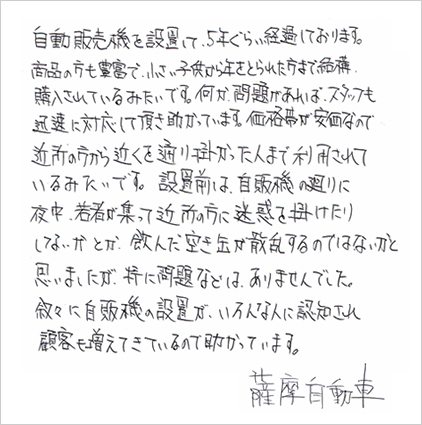 自動販売機を設置して、5年ぐらい経過しております。
商品の方も豊富で、小さい子供から年をとられた方まで結構、
購入されているみたいです。何か問題があれば、スタッフも
迅速に対応して頂き助かっています。価格帯が安価なので
近所の方から近くを通り掛かった人まで利用されて
いるみたいです。設置前は、自販機の廻りに
夜中、若者が集って近所の方に迷惑を掛けたり
しないかとか、飲んだ空き缶が散乱するのではないかと
思いましたが、特に問題などは、ありませんでした。
叙々に自販機の設置が、いろんな人に認知され
顧客も増えてきているので助かっています。
薩摩自動車